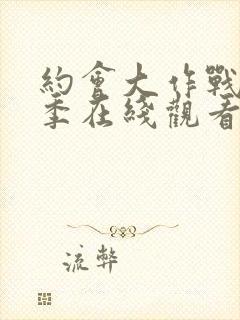 約會大作戰
季在綫觀看
流弊